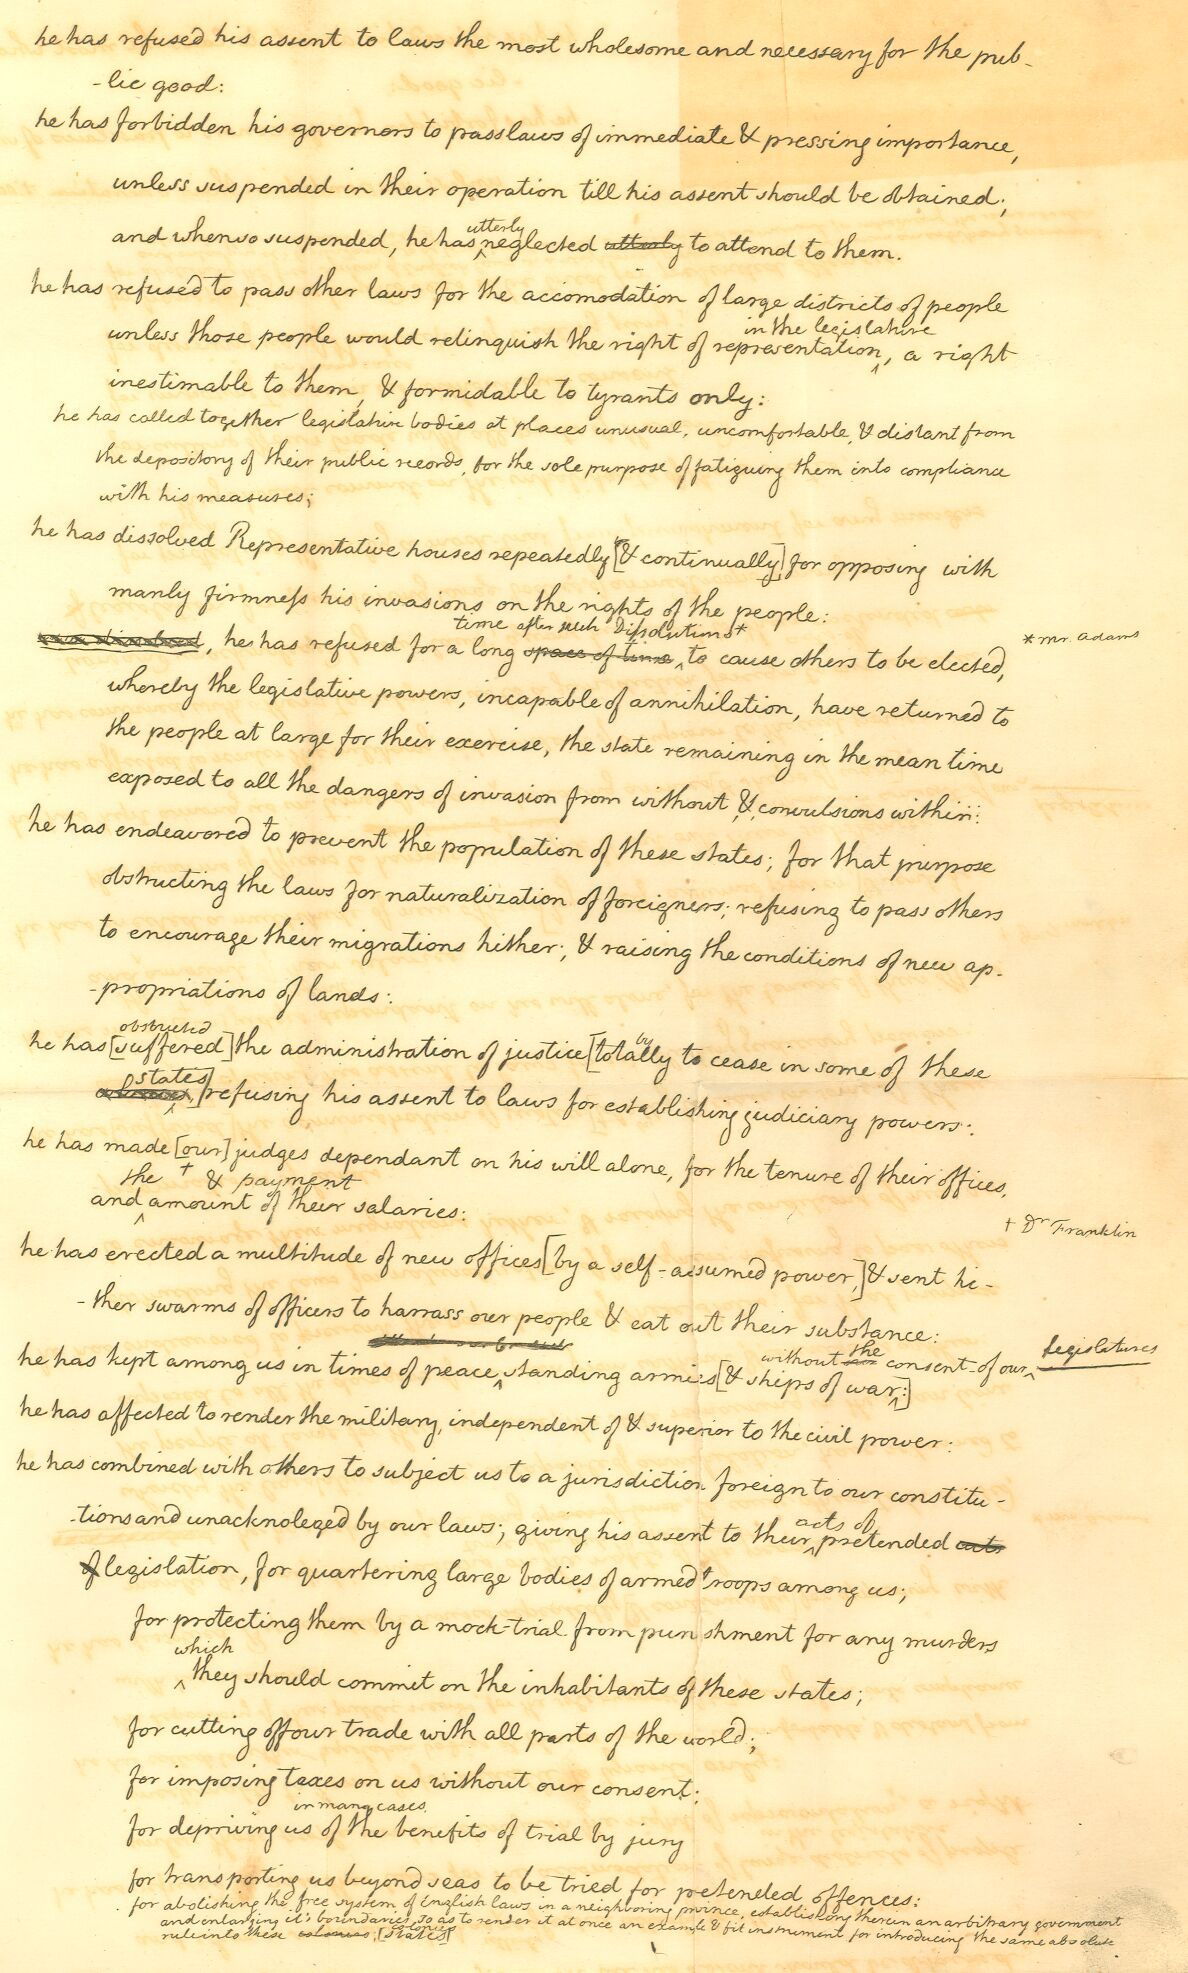 he has refused his assent to laws the most wholesome and necessary for the pub-
-lic good:
he has forbidden his governors to pass laws of immediate & pressing importance,
unless suspended in their operation till his assent should be obtained;
utterly
and when so suspended, he has neglected utterly to attend to them.
he has refused to pass other laws for the accomodation of large districts of people
in the legislature
unless those people would relinquish the right of representation, a right
inestimable to them, & formidable to tyrants only:
he has called together legislative bodies at places unusual, uncomfortable, & distant from
the depository of their public records, for the sole purpose of fatiguing them into compliance
with his measures;
he has dissolved Representative houses repeatedly [& continually] for opposing with
manly firmness his invasions on the rights of the people:
time after such Dissolutions*
he has refused for a long space of time to cause others to be elected,
* Mr. Adams
whereby the legislative powers, incapable of annihilation, have returned to
the people at large for their exercise, the state remaining in the mean time
exposed to all the dangers of invasion from without, & convulsions within:
he has endeavored to prevent the population of these states; for that purpose
obstructing the laws for naturalization of foreigners; refusing to pass others
to encourage their migrations hither; & raising the conditions of new ap-
-propriations of lands:
obstructed
he has [suffered] the administration of justice [totally to cease in some of these
by
states
] refusing his assent to laws for establishing judiciary powers:
he has made [our] judges dependant on his will alone, for the tenure of their offices,
the + & payment
and amount of their salaries:
+ Dr Franklin
he has erected a multitude of new offices [by a self-assumed power,] & sent hi-
-ther swarms of officers to harrass our people & eat out their substance:
without the consent of our legislatures
he has kept among us in times of peace, standing armies [& ships of war:]
he has affected to render the military, independent of & superior to the civil power:
he has combined with others to subject us to a jurisdiction foreign to our constitu-
-tions and unacknoleged by our laws; giving his assent to their pretended acts
acts of
of legislation, for quartering large bodies of armed troops among us;
for protecting them by a mock-trial from punishment for any murders
which
they should commit on the inhabitants of these states;
for cutting off our trade with all parts of the world;
for imposing taxes on us without our consent;
in many cases
for depriving us of the benefits of trial by jury
for transporting us beyond seas to be tried for pretended offences:
for abolishing the free system of English laws in a neighboring province, establishing therein an arbitrary government
and enlarging it's boundaries so as to render it at once an example & fit instrument for introducing the same absolute
colonies
rule into these colonies; [states]